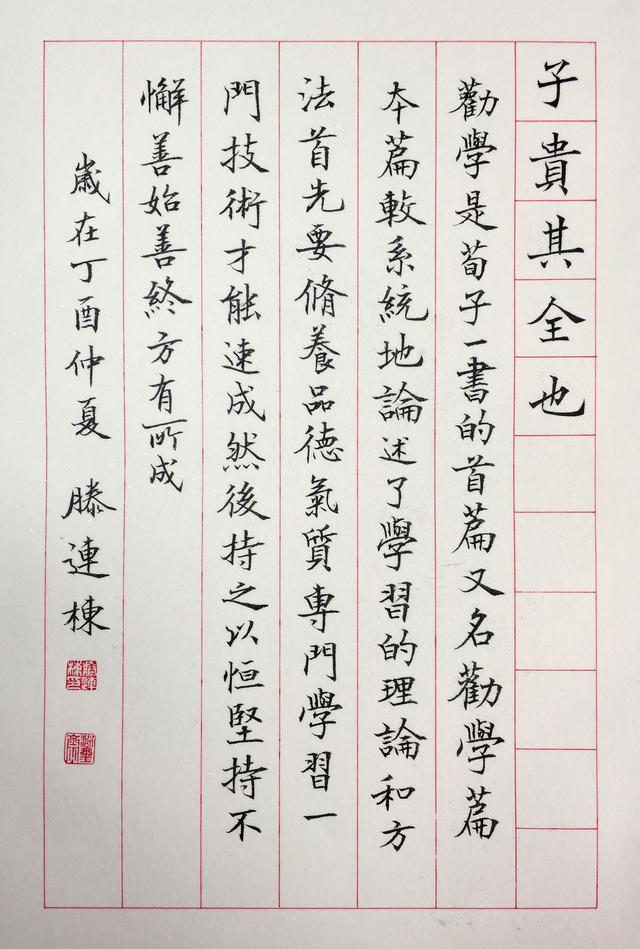 子貴其全也
勸學是荀子一書的首篇又名勸學篇
本篇較系統地論述了學習的理論和方
法首先要脩養品德氣質專門學習一
門技術才能速成然後持之以恒堅持不
懈善始善終方有所成
歲在丁酉仲夏 滕連棟